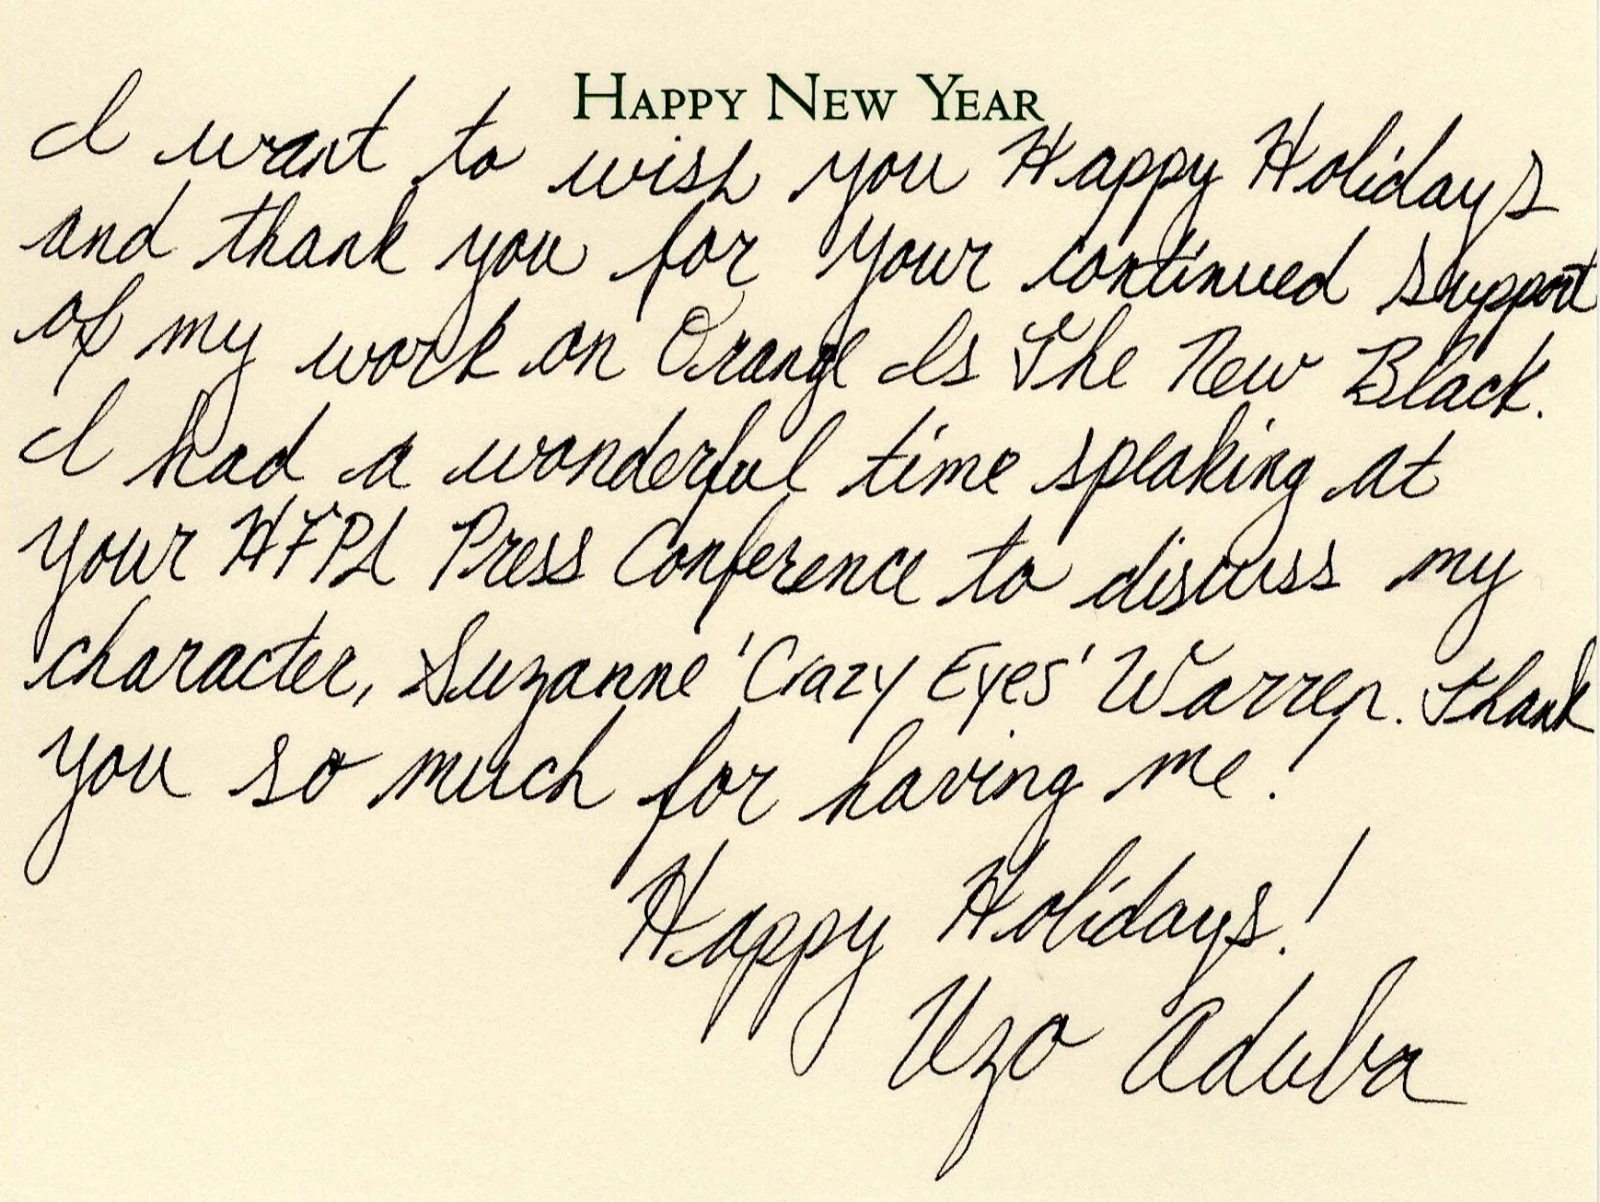 HAPPY NEW YEAR
I want to wish you Happy Holidays
and thank you for your continued support
of my work on Orange Is The New Black.
I had a wonderful time speaking at
your HFPA Press Conference to discuss my
character, Suzanne 'Crazy Eyes' Warren. Thank
you so much for having me!
Happy Holidays!
Uzo Aduba